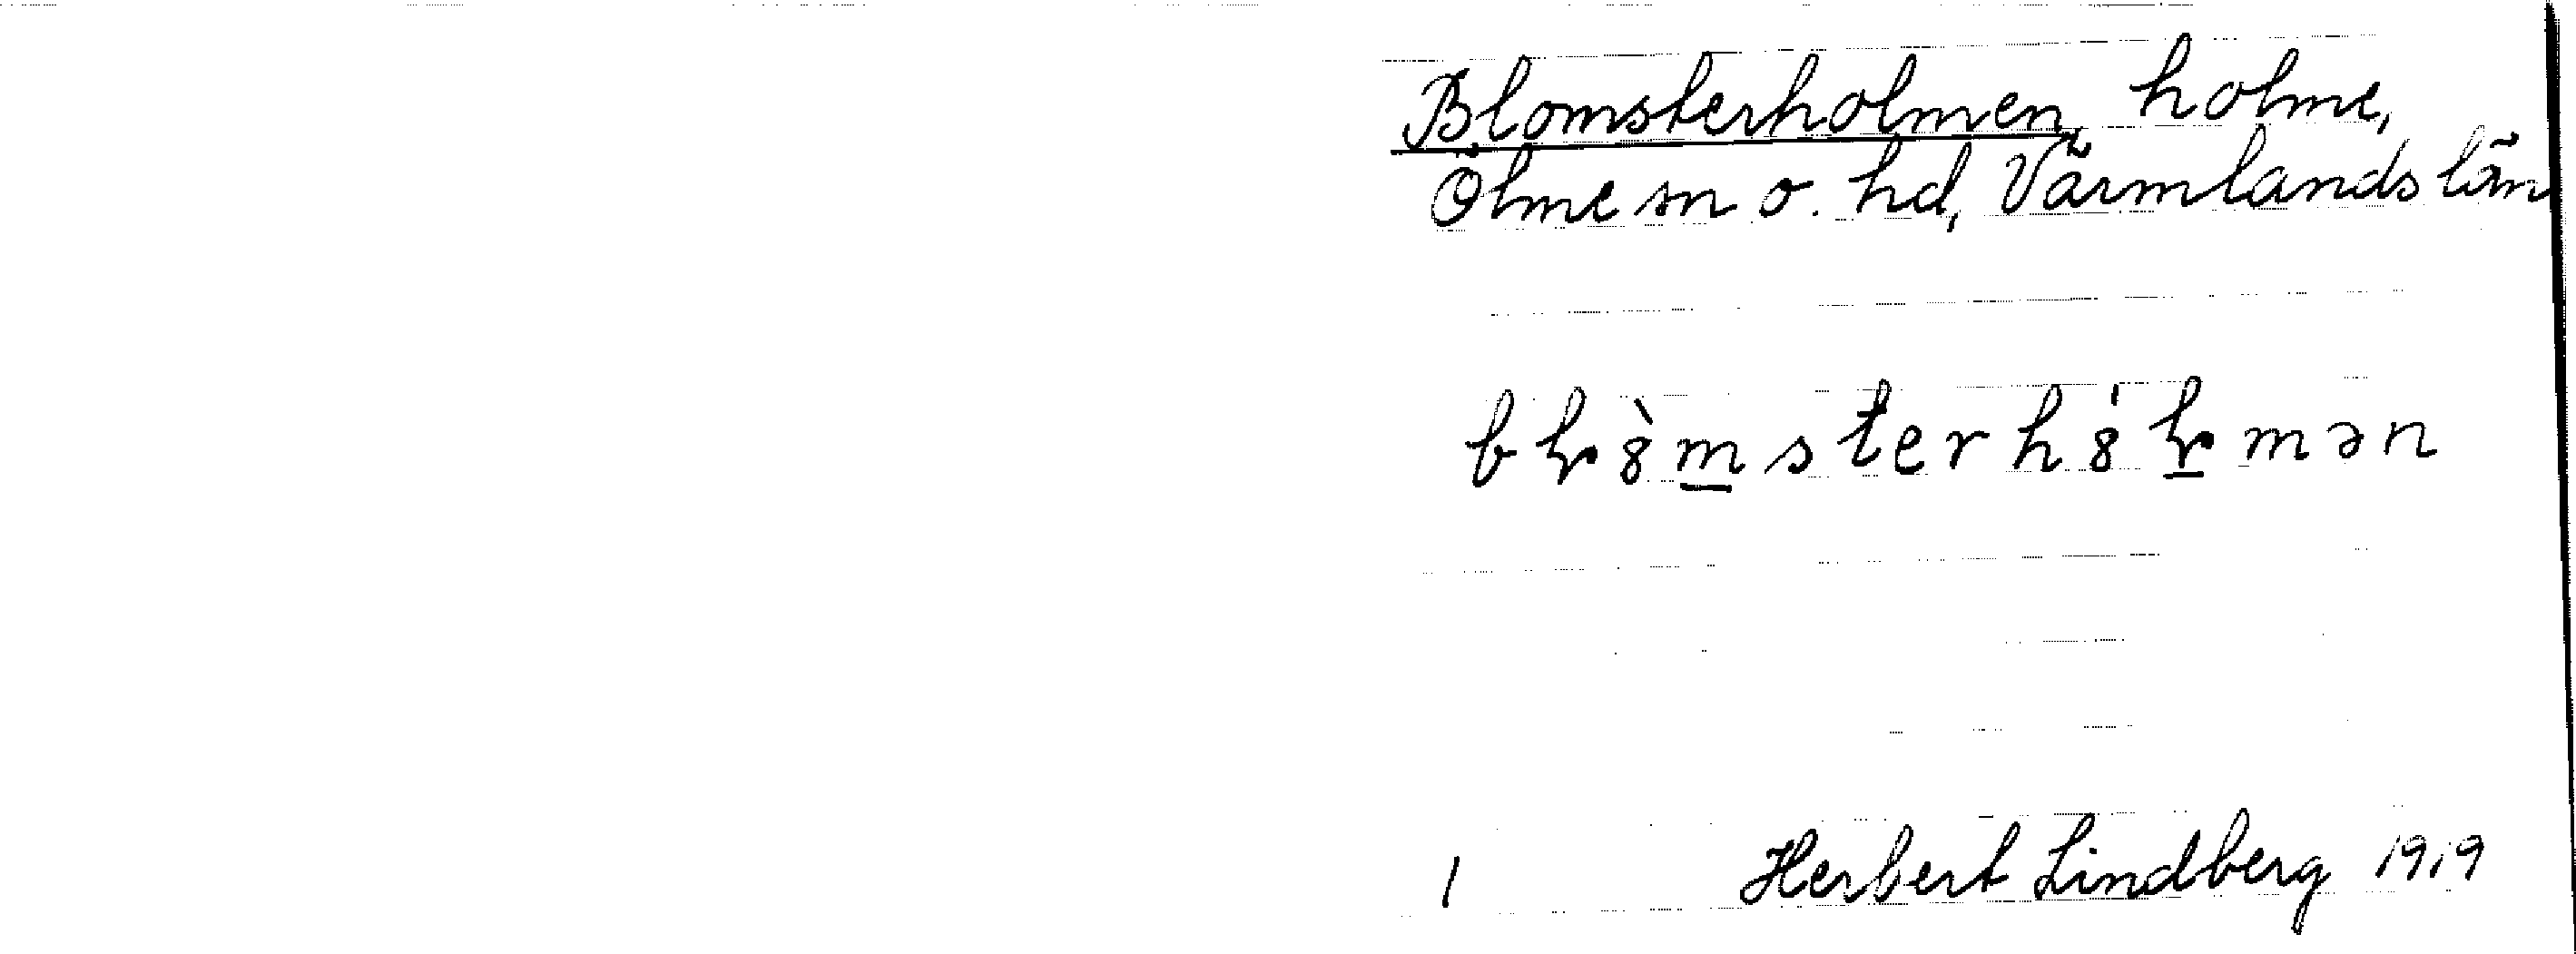 Blomsterholmen, holme,
Ölme sn o. hd, Värmlands län
bɽ8̀m̲sterh8́ɽ̲mən
1 Herbert Lindberg 1919